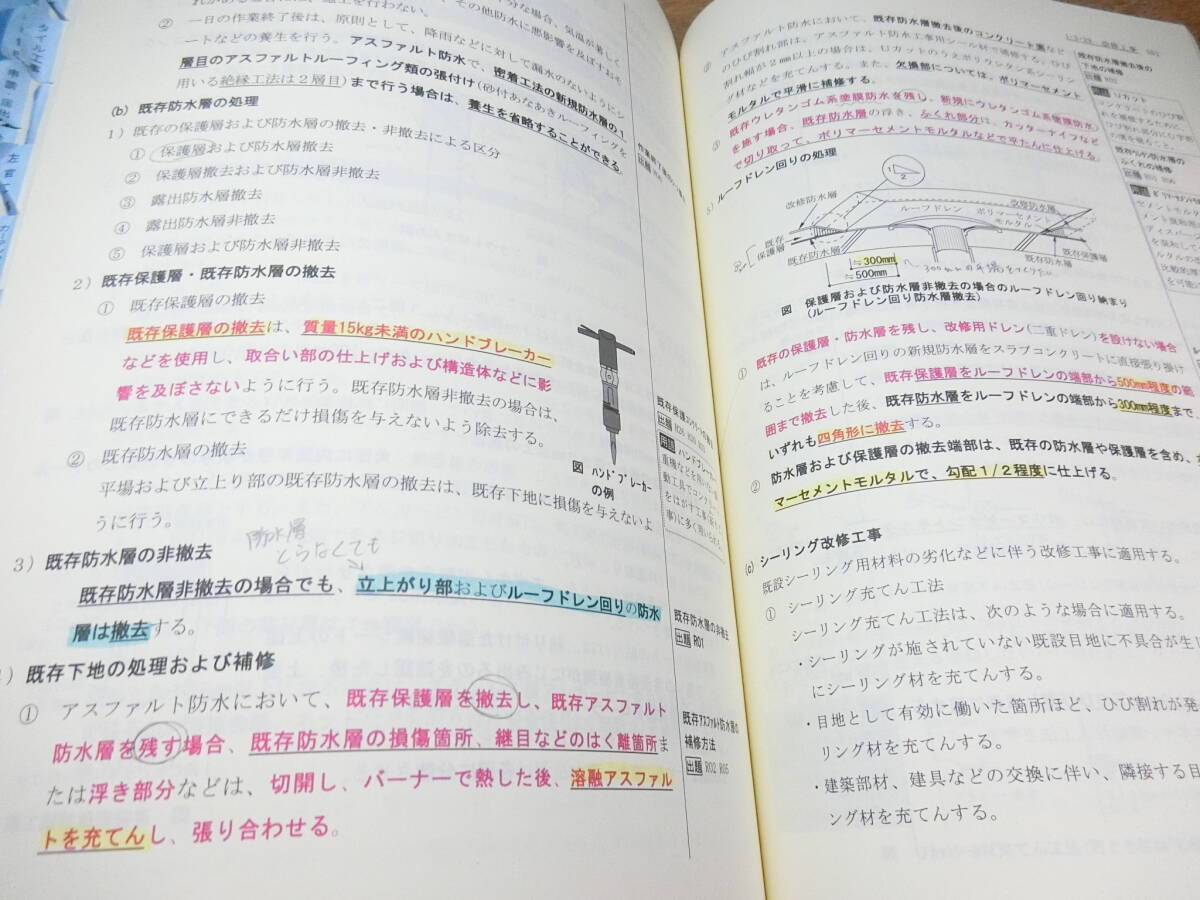 れがある場合は、施工を行わない。
② 一日の作業終了後は、原則として、降雨などに対して漏水のないようにシ
ートなどの養生を行う。アスファルト防水で、密着工法の新規防水層の1
層目のアスファルトルーフィング類の張付け(砂付あなあきルーフィングを
用いる絶縁工法は2層目)まで行う場合は、養生を省略することができる。
(b) 既存防水層の処理
1) 既存の保護層および防水層の撤去・非撤去による区分
① 保護層および防水層撤去
② 保護層撤去および防水層非撤去
③ 露出防水層撤去
④ 露出防水層非撤去
⑤ 保護層および防水層非撤去
2) 既存保護層・既存防水層の撤去
① 既存保護層の撤去
既存保護層の撤去は、質量15kg未満のハンドブレーカー
などを使用し、取合い部の仕上げおよび構造体などに影
響を及ぼさないように行う。既存防水層非撤去の場合は、
既存防水層にできるだけ損傷を与えないよう除去する。
② 既存防水層の撤去
平場および立上り部の既存防水層の撤去は、既存下地に損傷を与えないよ
うに行う。
図 ハンドブレーカー
の例
防水層
とらなくても
3) 既存防水層の非撤去
既存防水層非撤去の場合でも、立上がり部およびルーフドレン回りの防水
層は撤去する。
) 既存下地の処理および補修
① アスファルト防水において、既存保護層を撤去し、既存アスファルト
防水層を残す場合、既存防水層の損傷箇所、継目などのはく離箇所ま
たは浮き部分などは、切開し、バーナーで熱した後、溶融アスファル
トを充てんし、張り合わせる。
出題
用語 ハンドブレーカー
既存防水層の非撤去
出題 R01
既存アスファルト防水層の
補修方法
出題 R02 R05
タイル工事
申請・届出
左官工
アスファルト防水において、既存防水層撤去後のコンクリート面など
のひび割れ部は、アスファルト防水工事用シール材で補修する。ひび
割れ幅が2mm以上の場合は、Uカットのうえポリウレタン系シーリン
グ材などを充てんする。また、欠損部については、ポリマーセメント
モルタルで平滑に補修する。
③ 既存ウレタンゴム系塗膜防水を残し、新規にウレタンゴム系塗膜防水
を施す場合、既存防水層の浮き、ふくれ部分は、カッターナイフなど
で切り取って、ポリマーセメントモルタルなどで平たんに仕上げる。
) ルーフドレン回りの処理
1
2
改修防水層
改修防水層
ルーフドレン
ポリマーセメント
モルタル
既存
保護層
既存防水層
既存保護層
既存
防水層
≒300mm
≒500mm
図 保護層および防水層非撤去の場合のルーフドレン回り納まり
(ルーフドレン回り防水層撤去)
① 既存の保護層・防水層を残し、改修用ドレン(二重ドレン)を設けない場合
は、ルーフドレン回りの新規防水層をスラブコンクリートに直接張り掛け
ることを考慮して、既存保護層をルーフドレンの端部から500mm程度の範
囲まで撤去した後、既存防水層をルーフドレンの端部から300mm程度まで、
いずれも四角形に撤去する。
② 防水層および保護層の撤去端部は、既存の防水層や保護層を含め、ポ
マーセメントモルタルで、勾配1/2程度に仕上げる。
(c) シーリング改修工事
既設シーリング用材料の劣化などに伴う改修工事に適用する。
① シーリング充てん工法
シーリング充てん工法は、次のような場合に適用する。
・シーリングが施されていない既設目地に不具合が生じ
にシーリング材を充てんする。
・目地として有効に働いた箇所ほど、ひび割れが発
リング材を充てんする。
・建築部材、建具などの交換に伴い、隣接する目
ング材を充てんする。
既存防水層撤去後の
下地の補修
Uカット